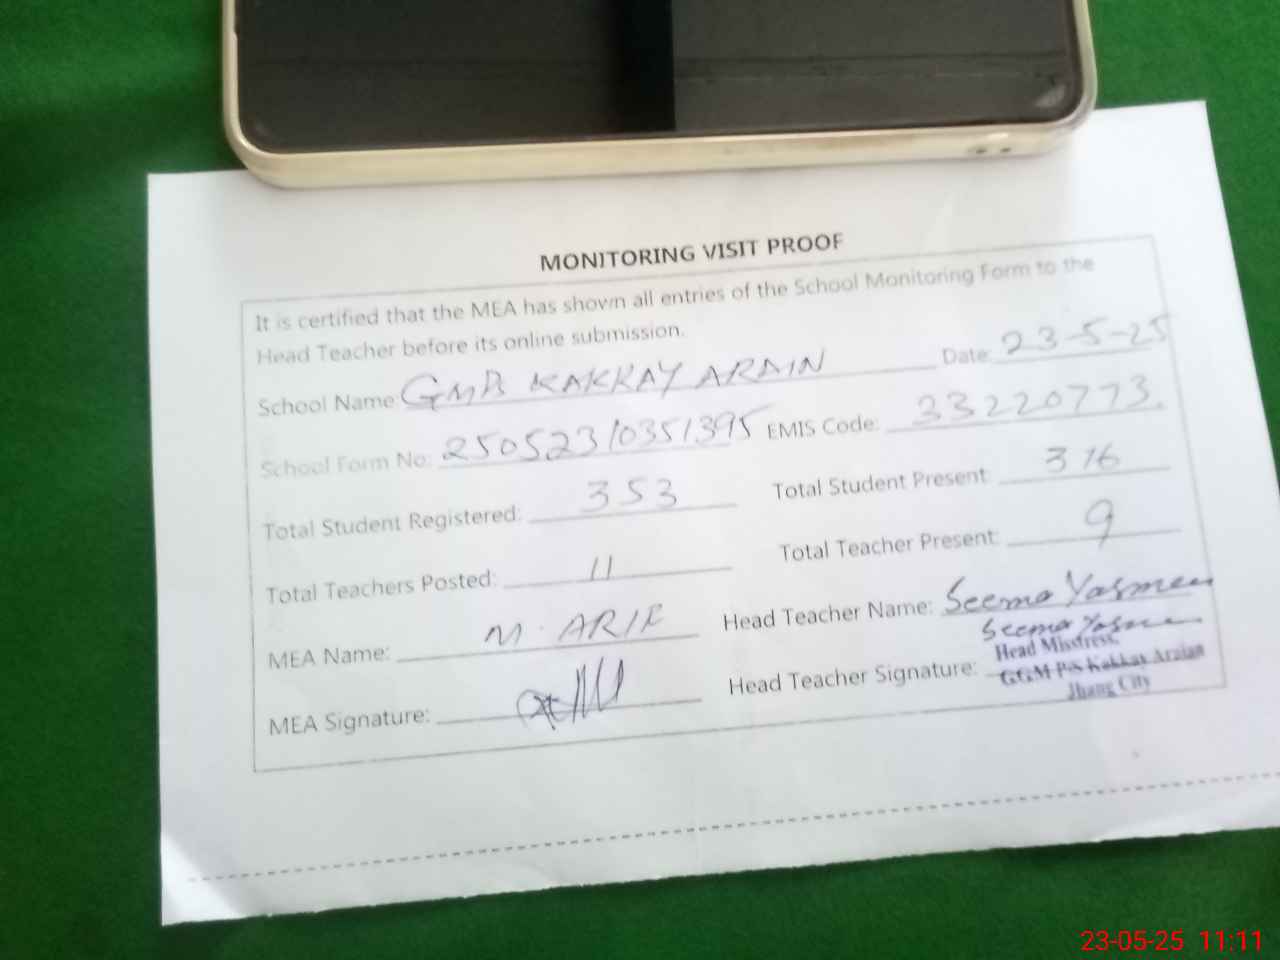 MONITORING VISIT PROOF
It is certified that the MEA has shown all entries of the School Monitoring Form to the
Head Teacher before its online submission.
School Name GMPS KAKKAY ARAIN Date: 23-5-25
School Form No: 25052310351395 EMIS Code: 33220773
Total Student Registered: 353 Total Student Present: 316
Total Teachers Posted: 11 Total Teacher Present: 9
MEA Name: M. ARIF Head Teacher Name: Seema Yasmeen
Seema Yasmeen
Head Misstress,
MEA Signature: Head Teacher Signature: GGM P/S Kakkay Araian
Jhang City
23-05-25 11:11